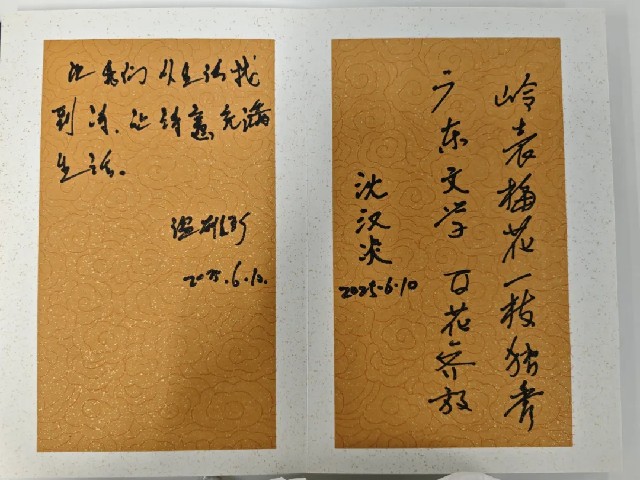 让我们从生活找
到诗，让诗意充满
生活。
温雄珍
2025.6.10.
岭表梅花一枝独秀
广东文学 百花齐放
沈汉炎
2025-6-10